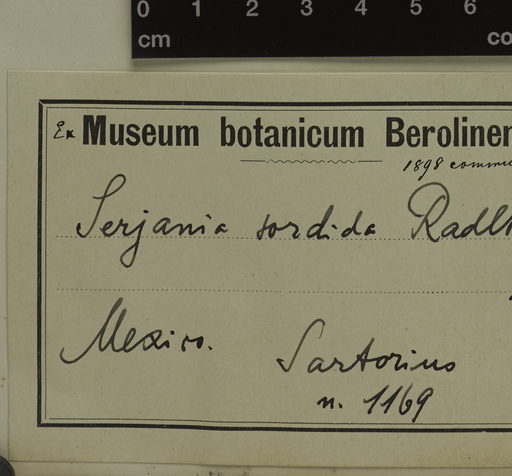 0 1 2 3 4 5 6
cm co
Ex Museum botanicum Beroliner
1898 commu
Serjania sordida Radlk
Mexico.
Sartorius
n. 1169